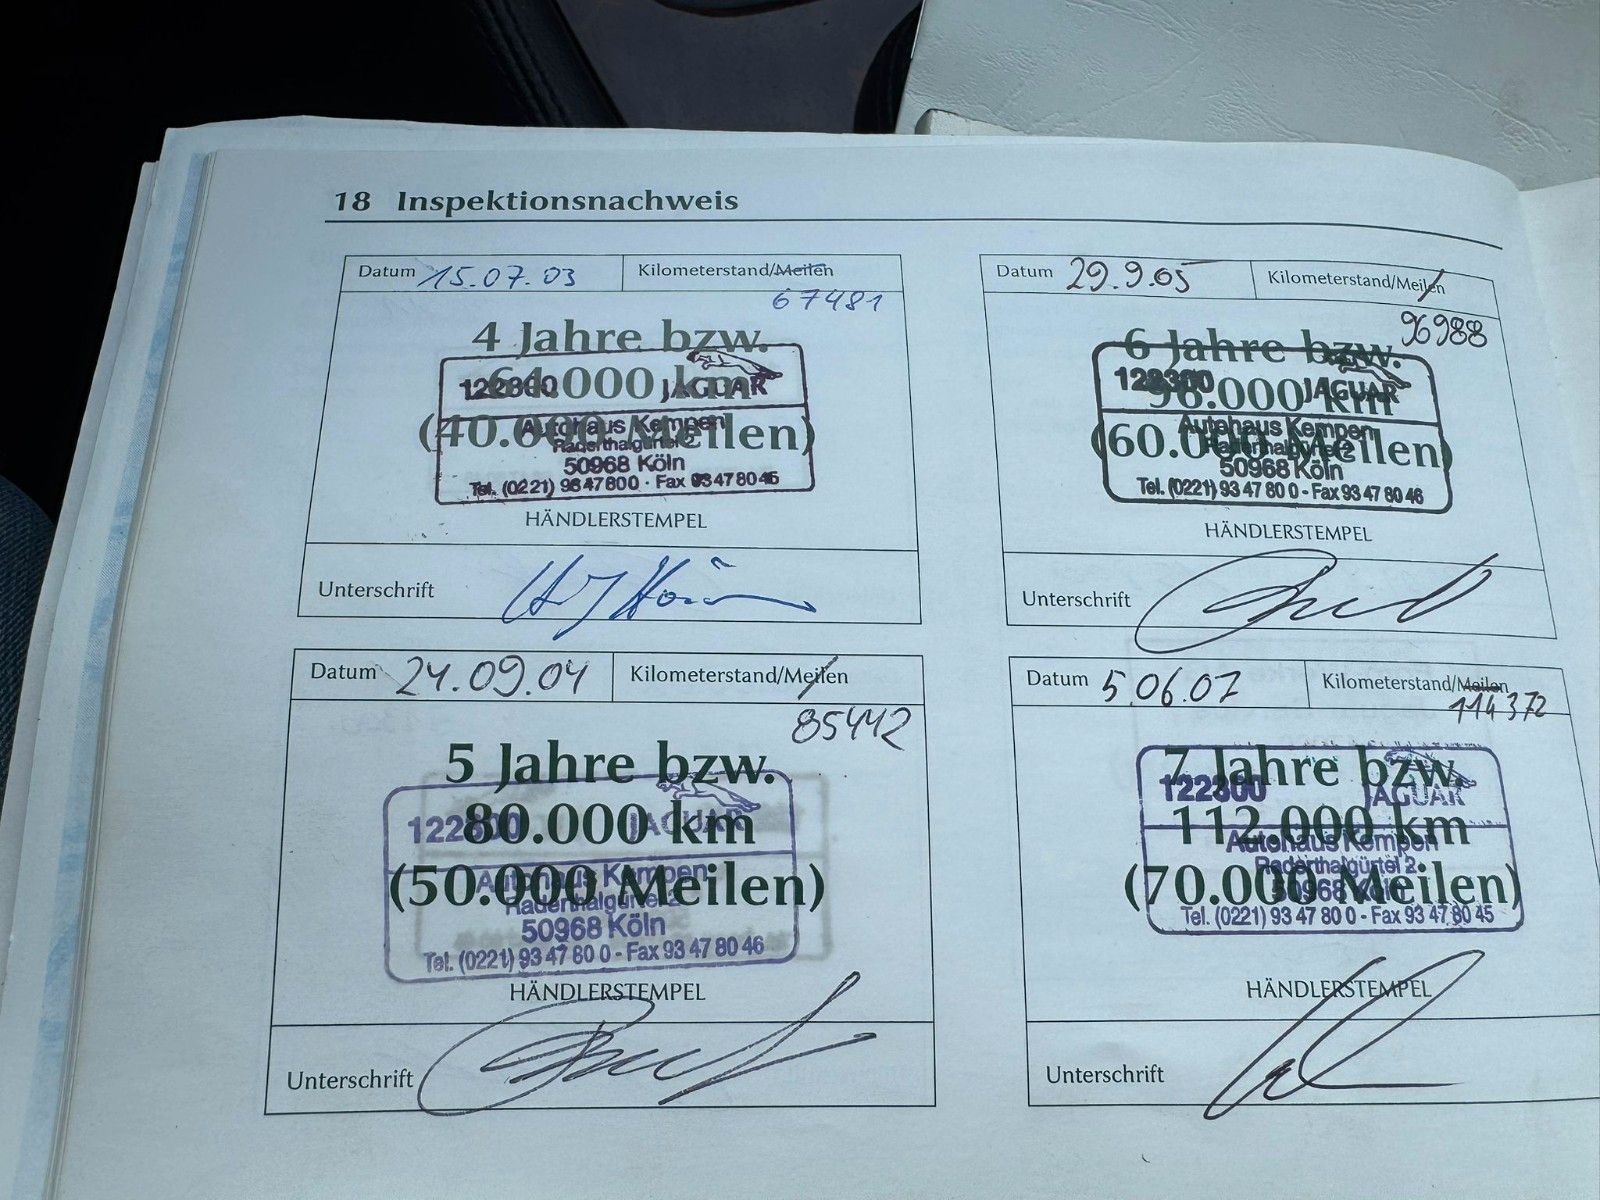 18 Inspektionsnachweis
Datum 15.07.03 Kilometerstand/Meilen
67481
4 Jahre bzw.
64.000 km
(40.000 Meilen)
122300 JAGUAR
Autohaus Kempen
Raderthalgürtel 2
50968 Köln
Tel. (0221) 9347800 · Fax 93478045
HÄNDLERSTEMPEL
Unterschrift
Datum 24.09.04 Kilometerstand/Meilen
85442
5 Jahre bzw.
80.000 km
(50.000 Meilen)
122300 JAGUAR
Autohaus Kempen
Raderthalgürtel 2
50968 Köln
Tel. (0221) 93 47 80 0 - Fax 93 47 80 46
HÄNDLERSTEMPEL
Unterschrift
Datum 29.9.05 Kilometerstand/Meilen
96988
6 Jahre bzw.
96.000 km
(60.000 Meilen)
122300 JAGUAR
Autohaus Kempen
Raderthalgürtel 2
50968 Köln
Tel. (0221) 93 47 80 0 - Fax 93 47 80 46
HÄNDLERSTEMPEL
Unterschrift
Datum 5.06.07 Kilometerstand/Meilen
114372
7 Jahre bzw.
112.000 km
(70.000 Meilen)
122300 JAGUAR
Autohaus Kempen
Raderthalgürtel 2
50968 Köln
Tel. (0221) 93 47 80 0 - Fax 93 47 80 45
HÄNDLERSTEMPEL
Unterschrift